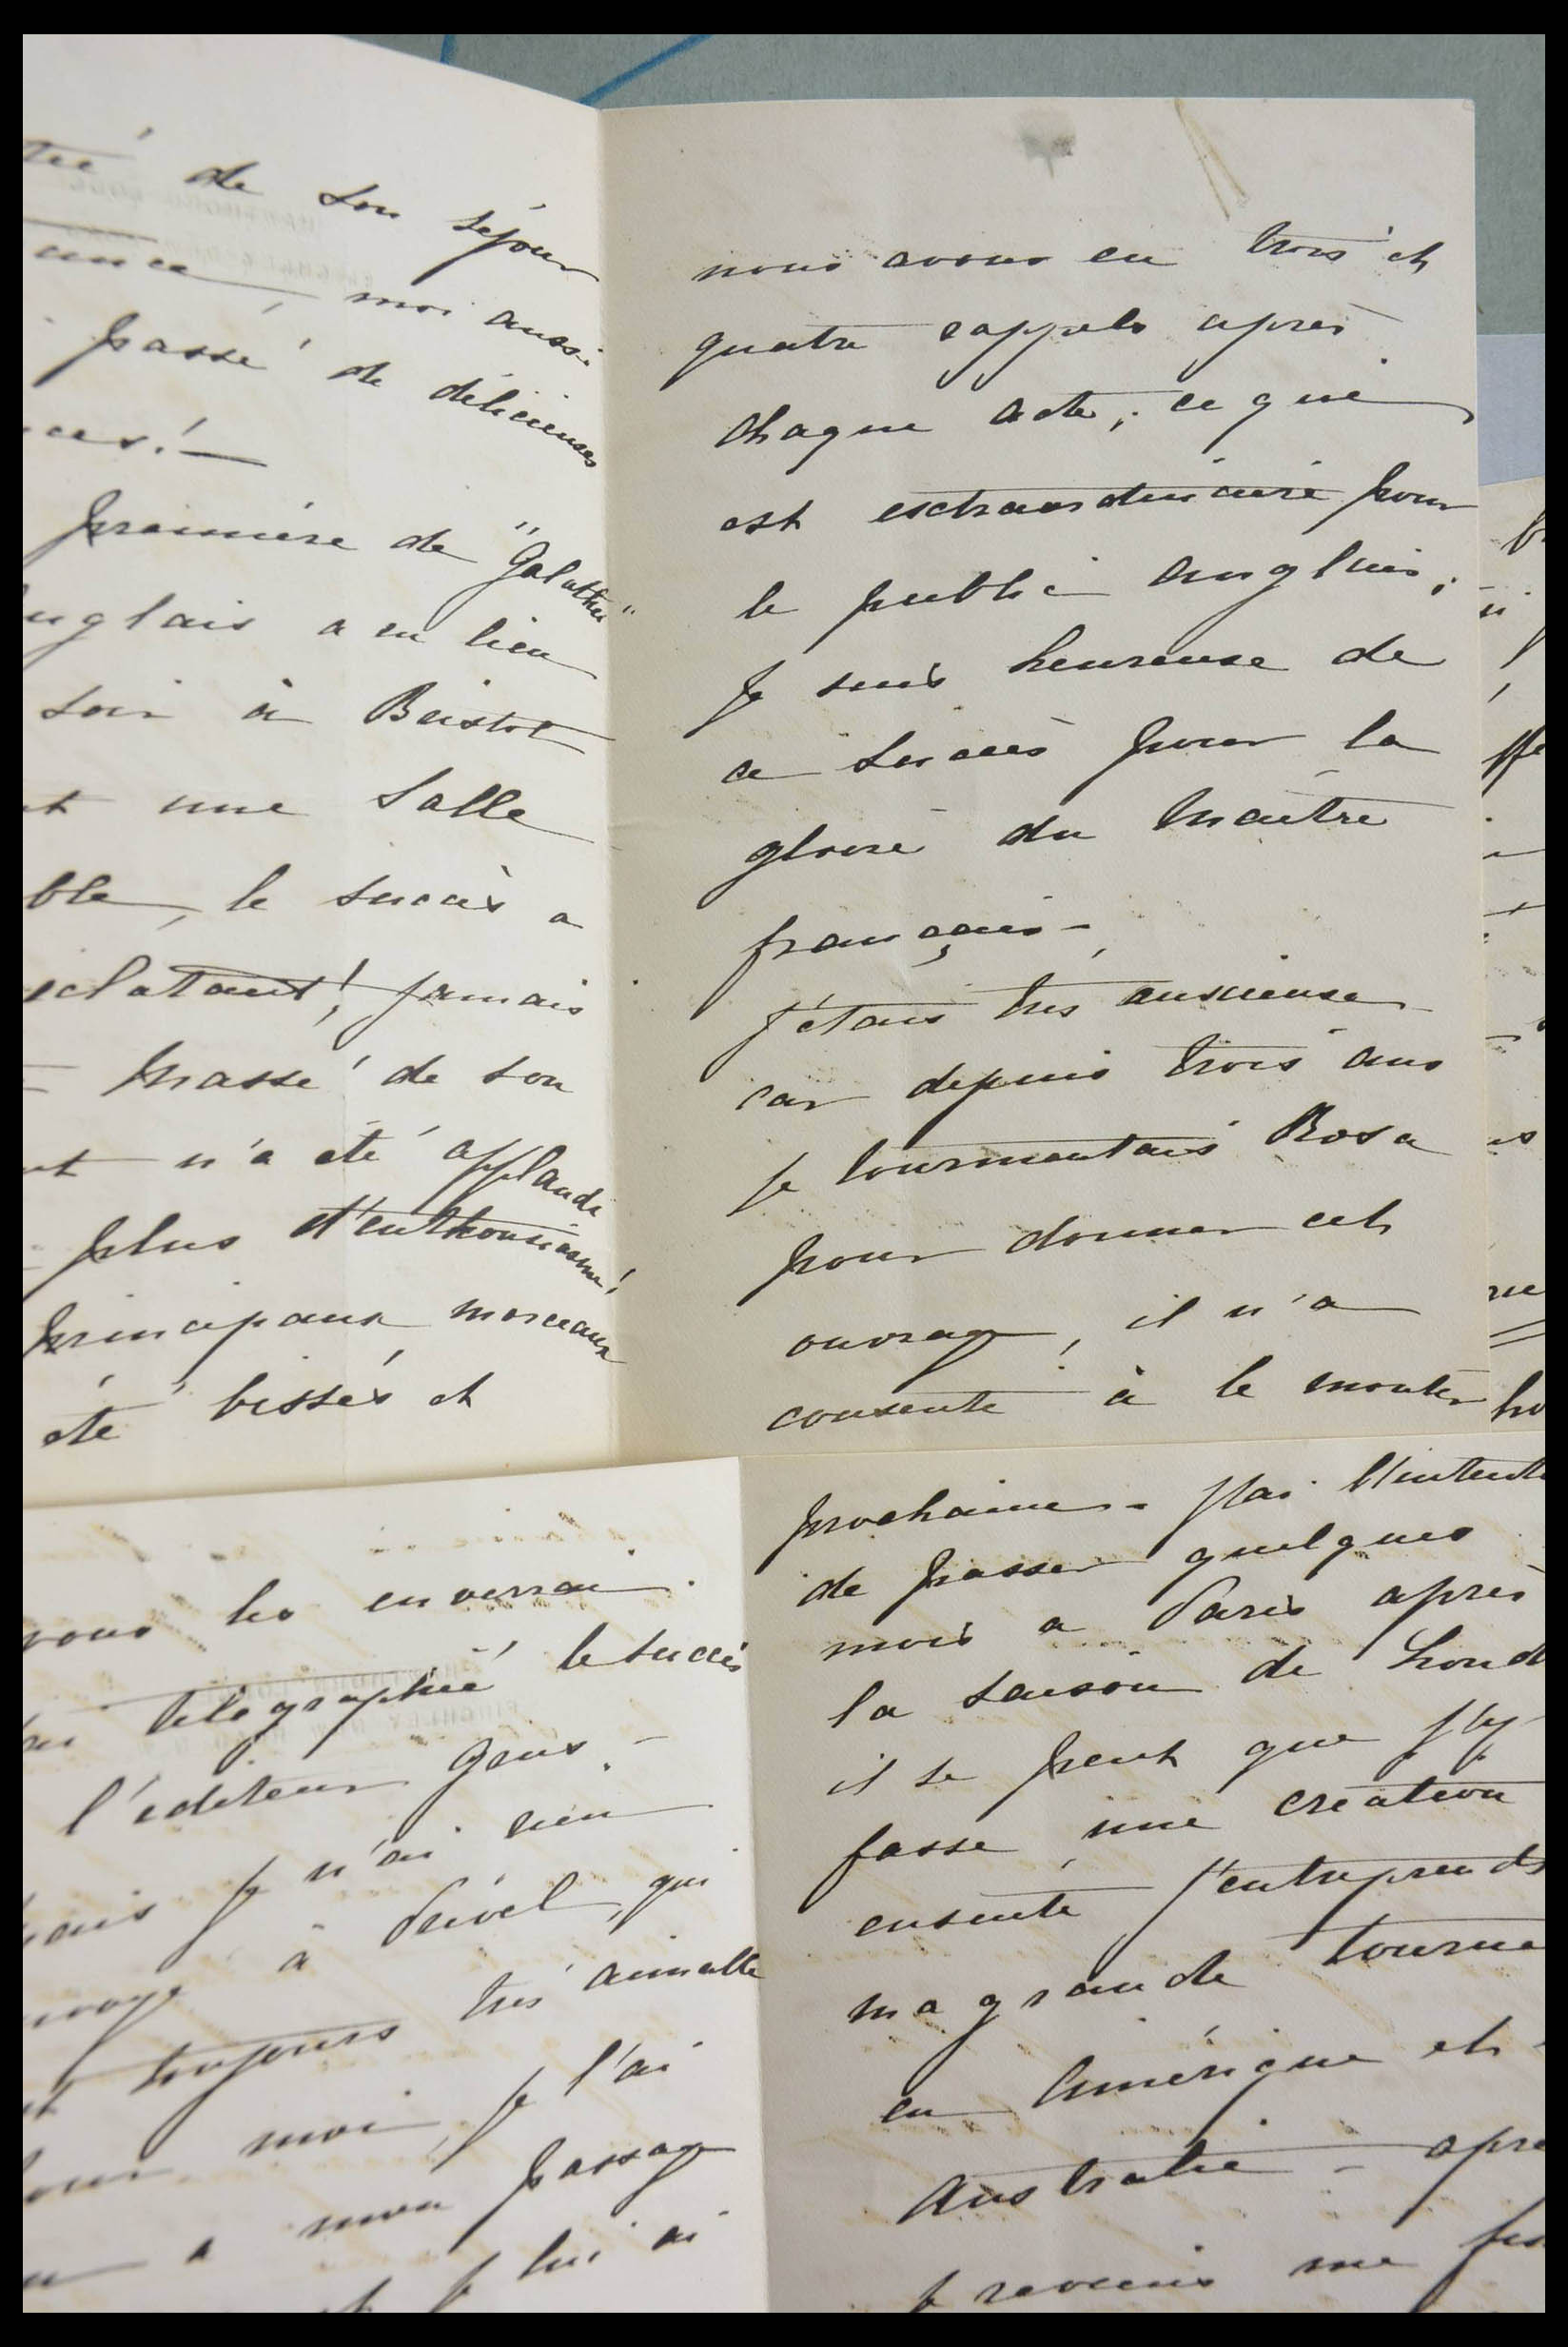 de son séjour
moi aussi
passé de délicieuses
première de "Galathée"
a eu lieu
soir à Bristol
une salle
le succès a
éclatant! jamais
Massé de son
n'a été applaudi
plus d'enthousiasme!
principaux morceaux
été bissés et
nous avons eu trois et
quatre rappels après
chaque acte, ce qui
est extraordinaire pour
le public anglais,
je suis heureuse de
ce succès pour la
gloire du Maître
français -
J'étais très anxieuse
car depuis trois ans
je tourmentais Rosa
pour donner cet
ouvrage, il n'a
consenti à le monter
vous les enverrai.
télégraphié le succès
l'éditeur Grus. -
je n'ai rien
à qui
toujours très aimable
moi, je l'ai
a mon passage
et je lui ai
prochaine - J'ai l'intenti
de passer quelques
mois a Paris après
la saison de Lond
il se peut que j'y
fasse une création
ensuite j'entreprends
ma grande tourné
en Amérique et
Australie - apre
je reviens me